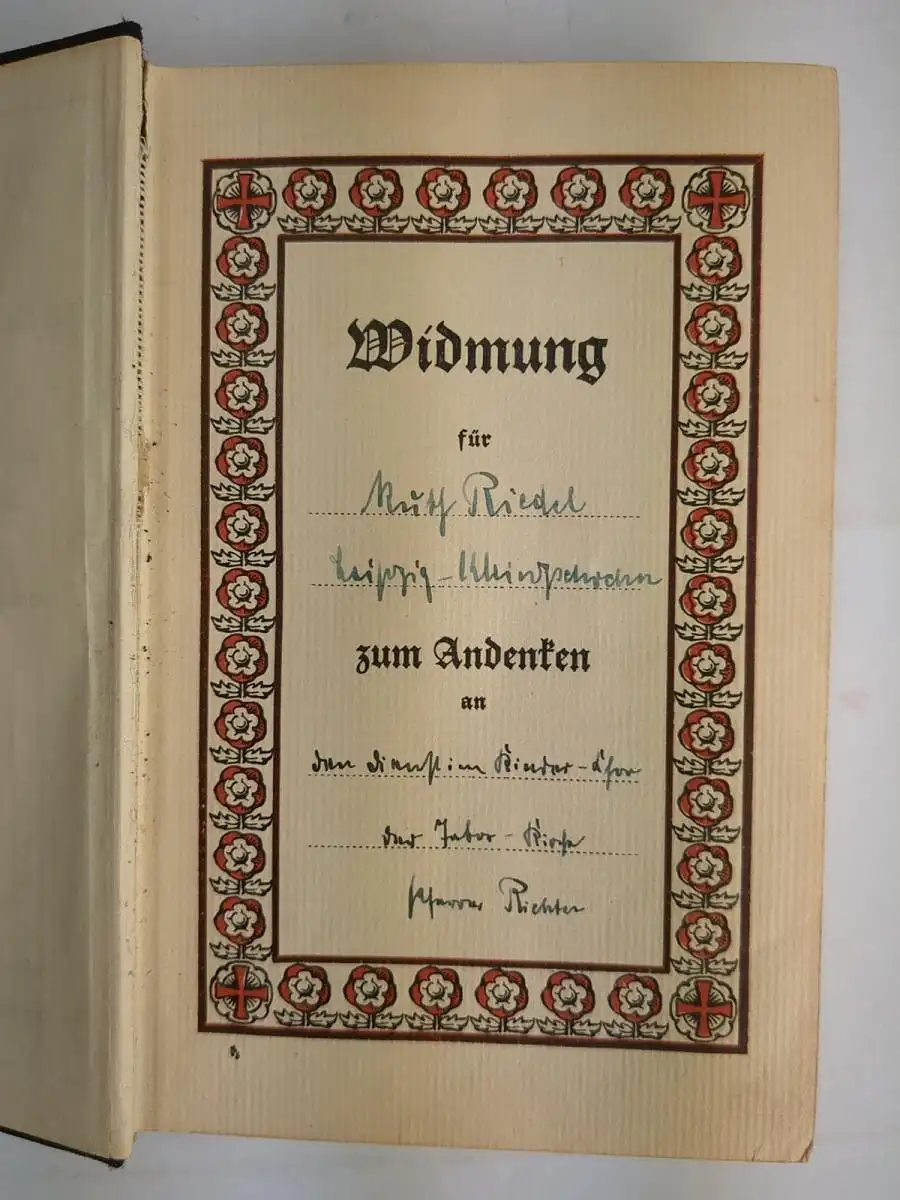 Widmung
für
Ruth Riedel
Leipzig-Kleinzschocher
zum Andenken
an
den Dienst im Kinder-Chor
der Tabor-Kirche
Pfarrer Richter